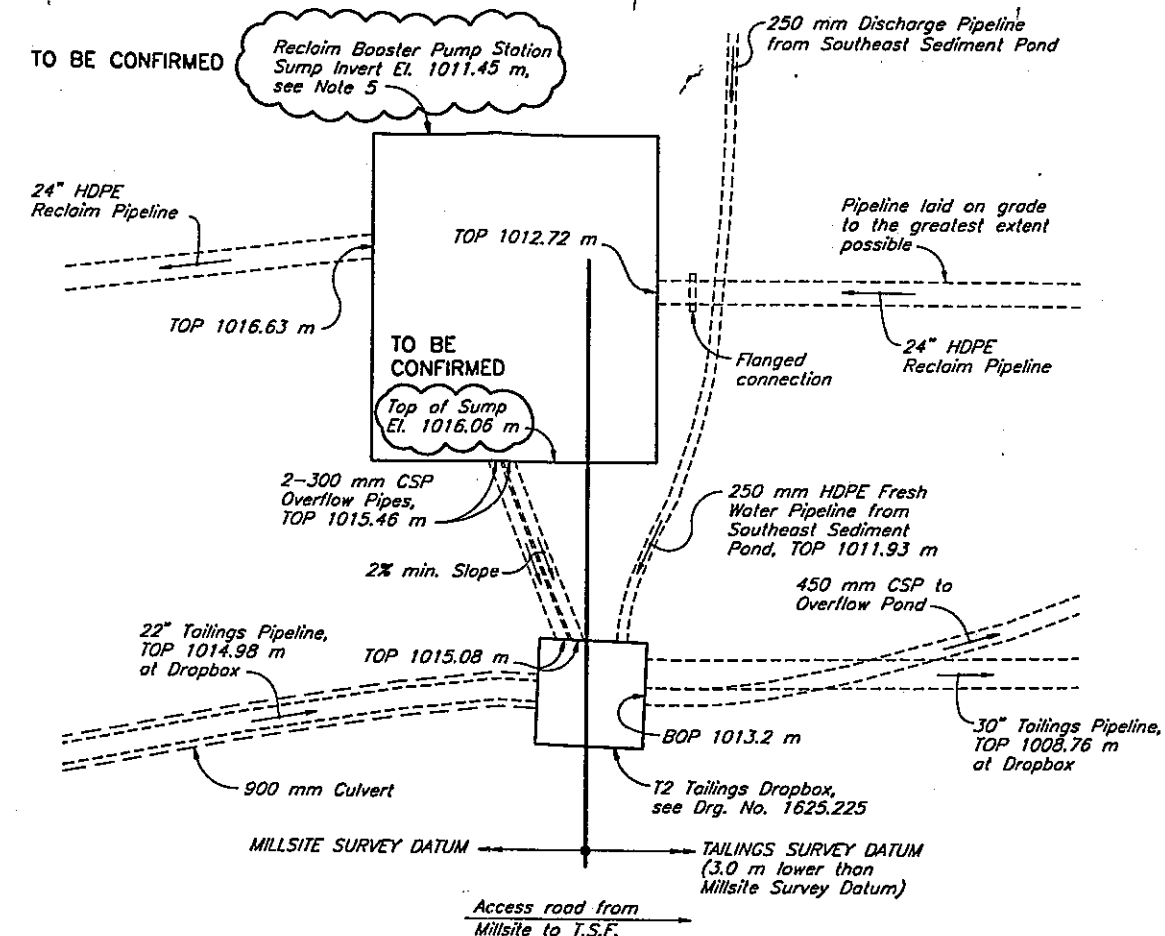 TO BE CONFIRMED
Reclaim Booster Pump Station
Sump Invert El. 1011.45 m,
see Note 5
250 mm Discharge Pipeline
from Southeast Sediment Pond
24" HDPE
Reclaim Pipeline
TOP 1012.72 m
Pipeline laid on grade
to the greatest extent
possible
TOP 1016.63 m
TO BE
CONFIRMED
Flanged
connection
24" HDPE
Reclaim Pipeline
Top of Sump
El. 1016.06 m
2-300 mm CSP
Overflow Pipes,
TOP 1015.46 m
250 mm HDPE Fresh
Water Pipeline from
Southeast Sediment
Pond, TOP 1011.93 m
2% min. Slope
450 mm CSP to
Overflow Pond
22" Tailings Pipeline,
TOP 1014.98 m
at Dropbox
TOP 1015.08 m
BOP 1013.2 m
30" Tailings Pipeline,
TOP 1008.76 m
at Dropbox
900 mm Culvert
T2 Tailings Dropbox,
see Drg. No. 1625.225
MILLSITE SURVEY DATUM
TAILINGS SURVEY DATUM
(3.0 m lower than
Millsite Survey Datum)
Access road from
Millsite to T.S.F.